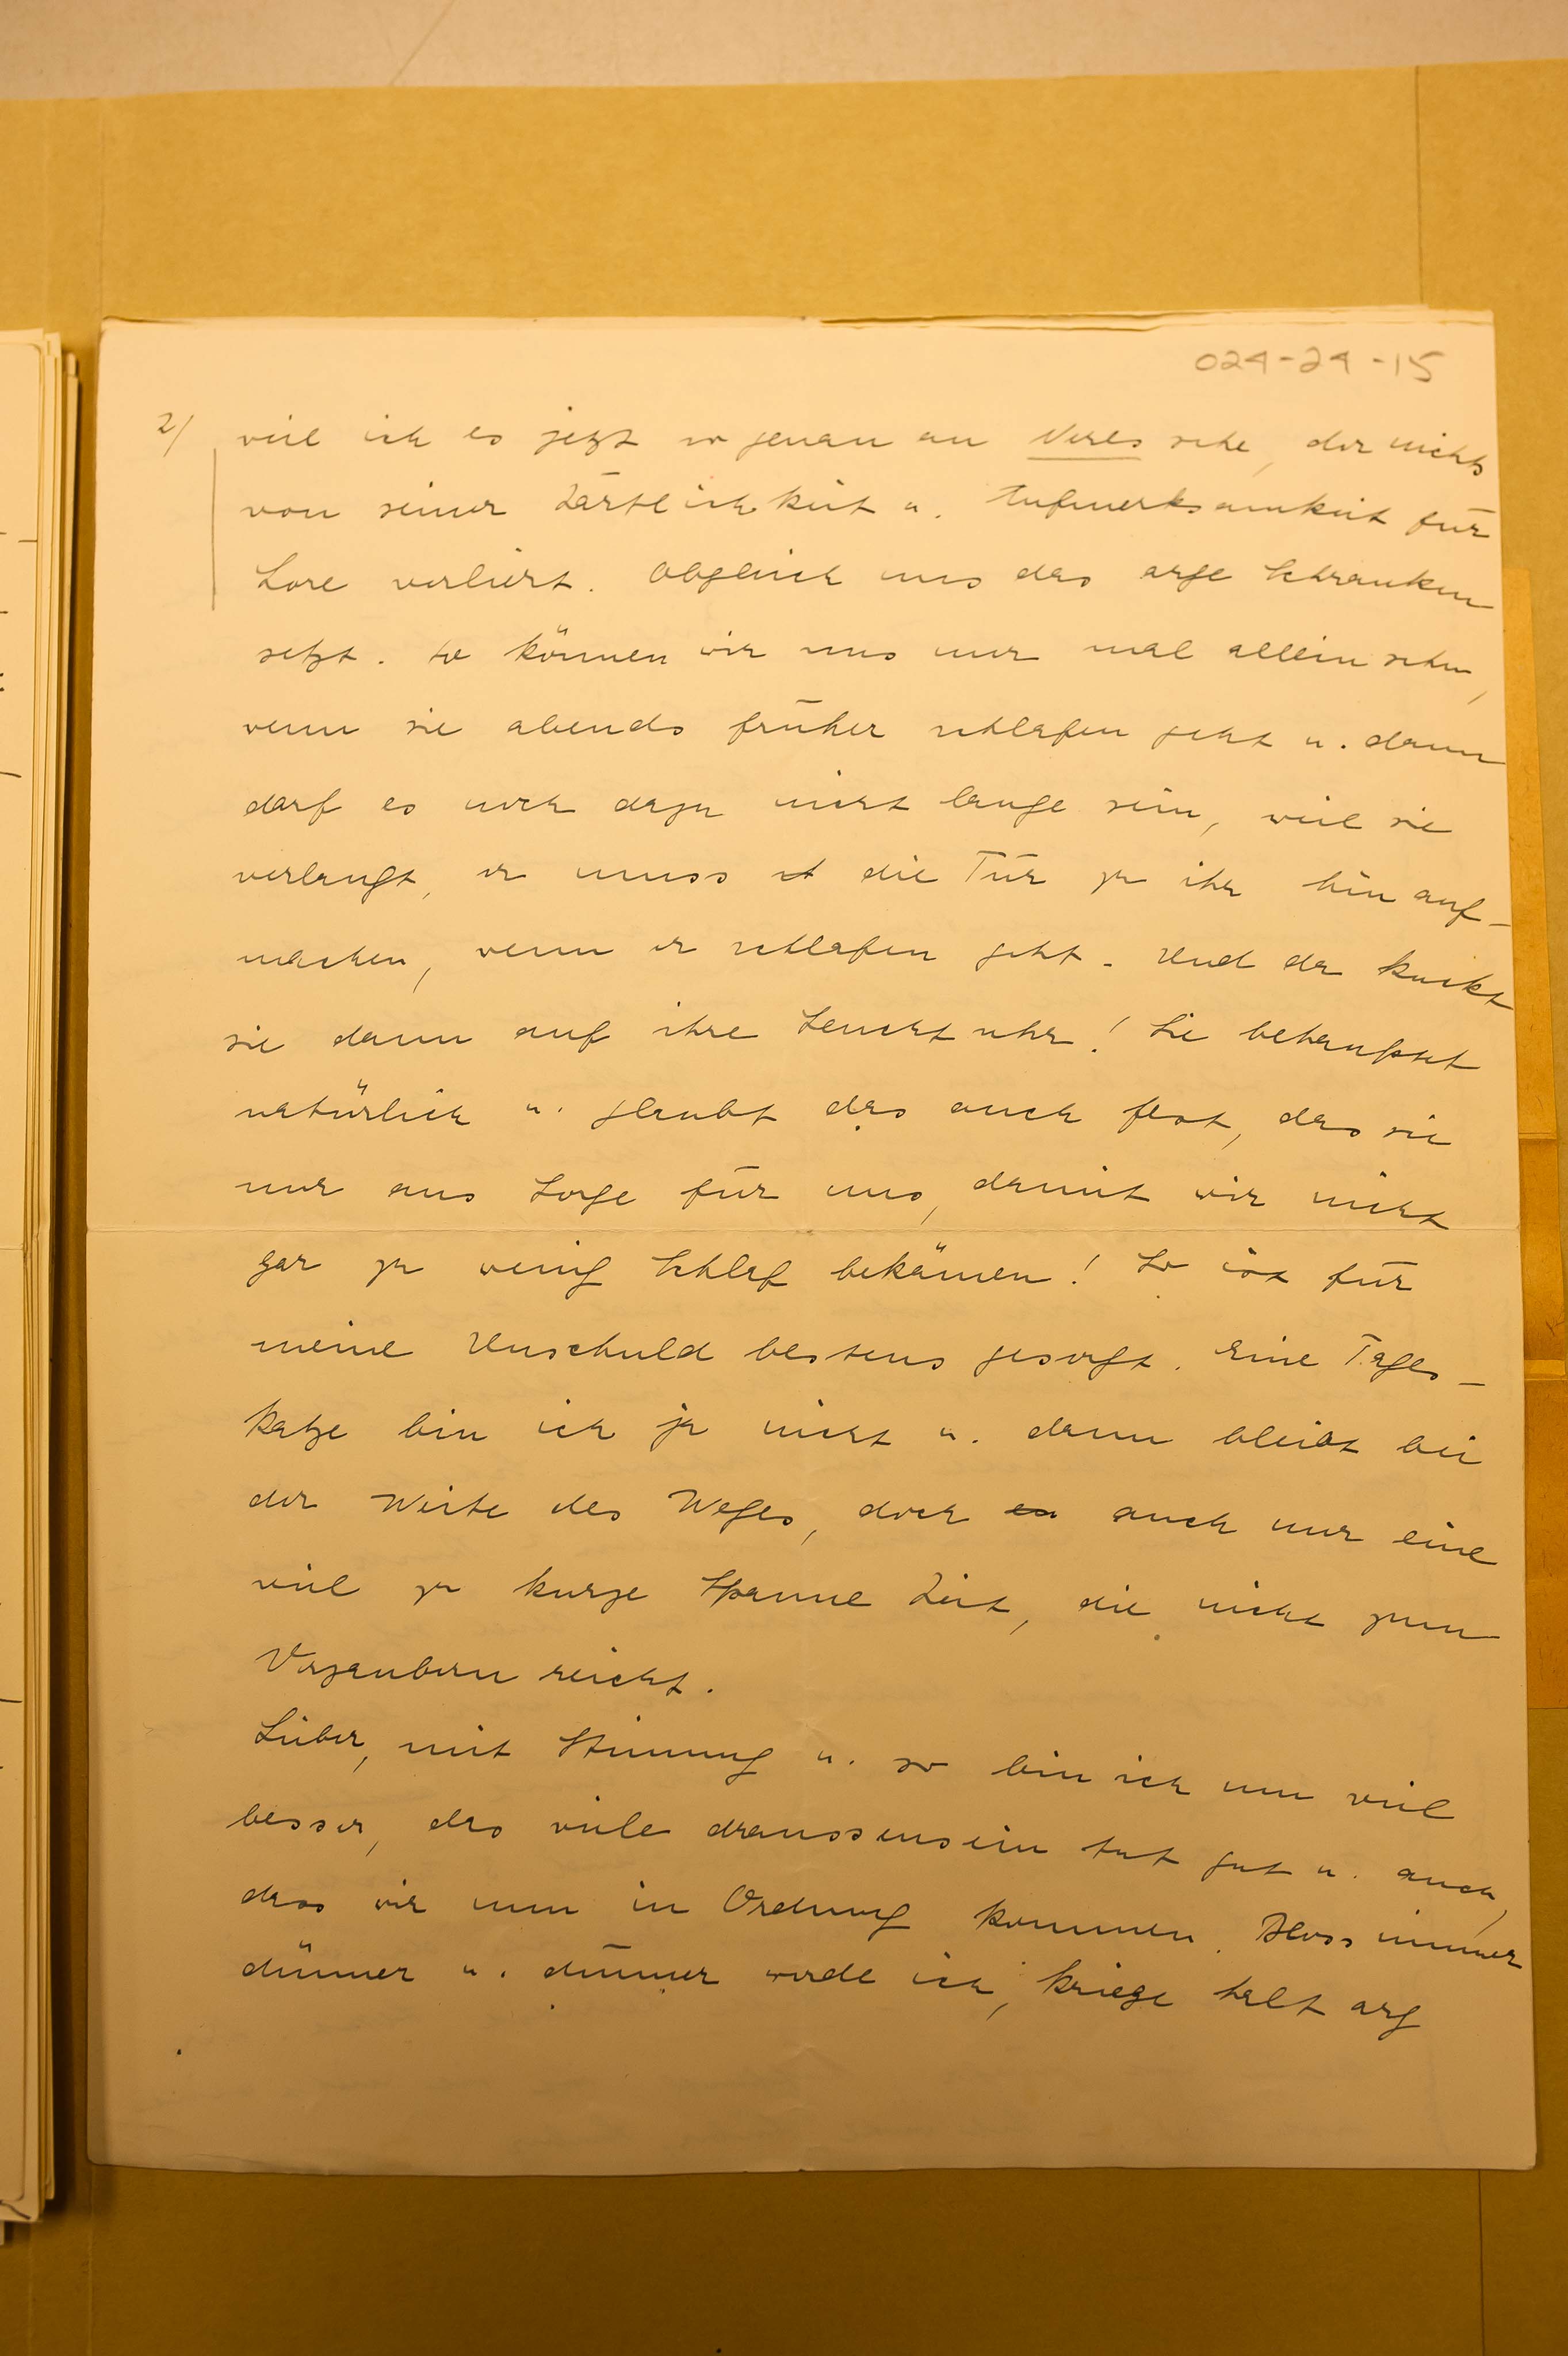 024-24-15
2/ weil ich es jetzt so genau an Neres sehe, der nichts
von seiner Zärtlichkeit u. Aufmerksamkeit für
Lore verliert. Obgleich uns das arge Schranken
setzt. So können wir uns nur mal allein sehn,
wenn sie abends früher schlafen geht u. dann
darf es noch dazu nicht lange sein, weil sie
verlangt, er muss die Tür zu ihr hin auf-
machen, wenn er schlafen geht. Und da kuckt
sie dann auf ihre Leuchtuhr! Sie behauptet
natürlich u. glaubt das auch fest, das sei
nur aus Sorge für uns, damit wir nicht
gar zu wenig Schlaf bekämen! So ist für
meine Unschuld bestens gesorgt. Eine Tages-
katze bin ich ja nicht u. dann bleibt bei
der Weite des Weges, doch auch nur eine
viel zu kurze Spanne Zeit, die nicht zum
Verzaubern reicht.
Lieber, mit Stimmung u. so bin ich nun viel
besser, das viele draussensein tut gut u. auch,
dass wir nun in Ordnung kommen. Bloss immer
dünner u. dünner werde ich, kriege halt arg